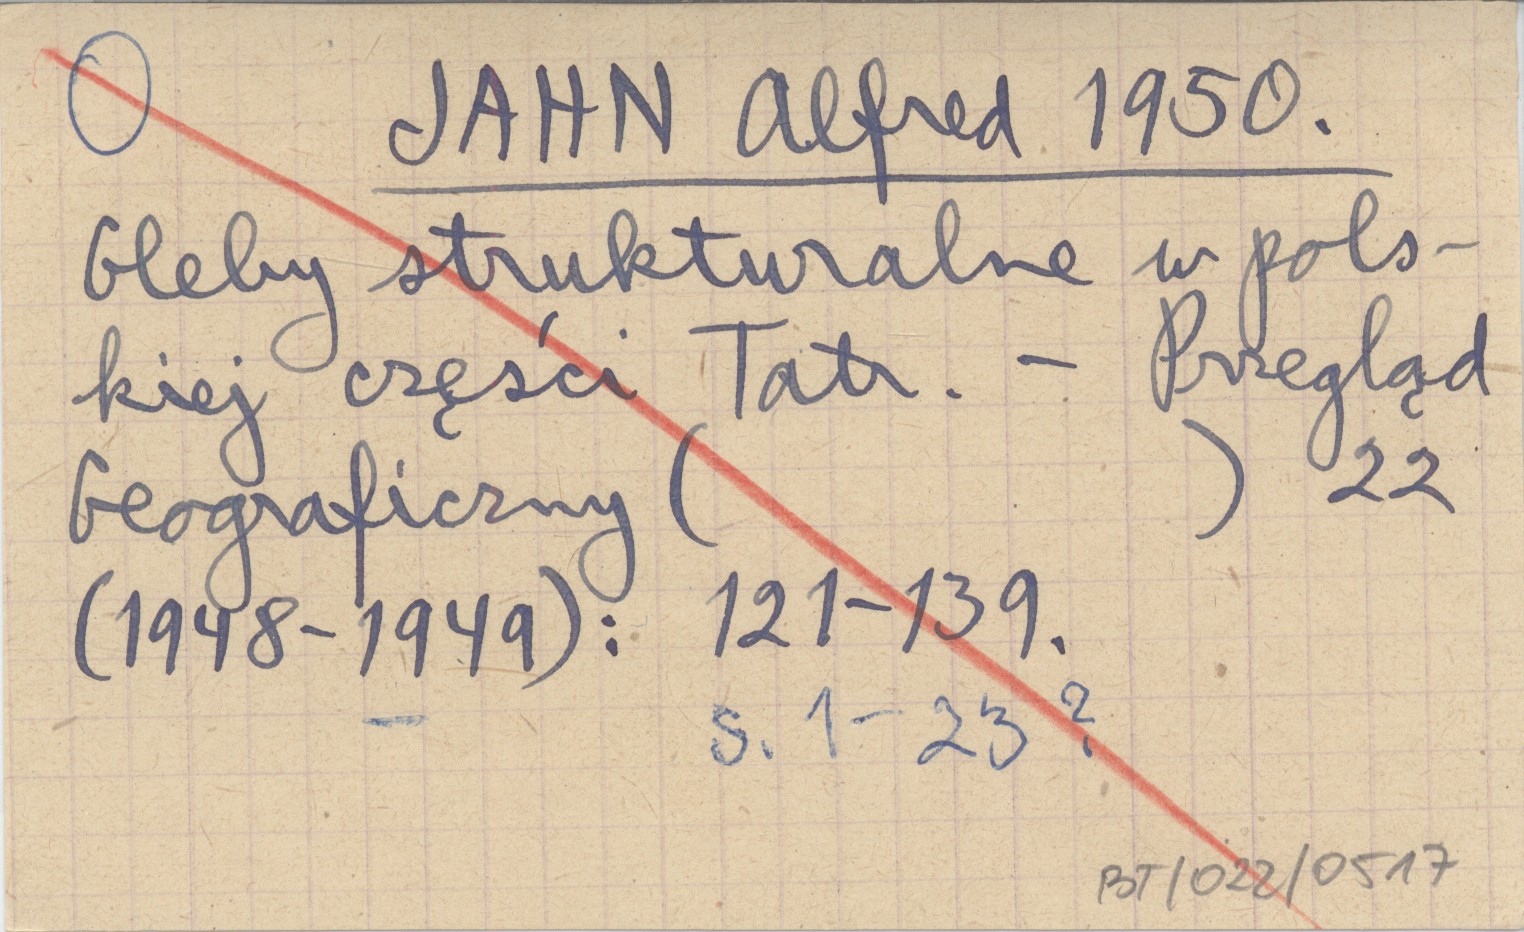 JAHN Alfred 1950.
Gleby strukturalne w pols-
kiej części Tatr. - Przegląd
Geograficzny ( ) 22
(1948-1949): 121-139.
s. 1-23?
BT/022/0517